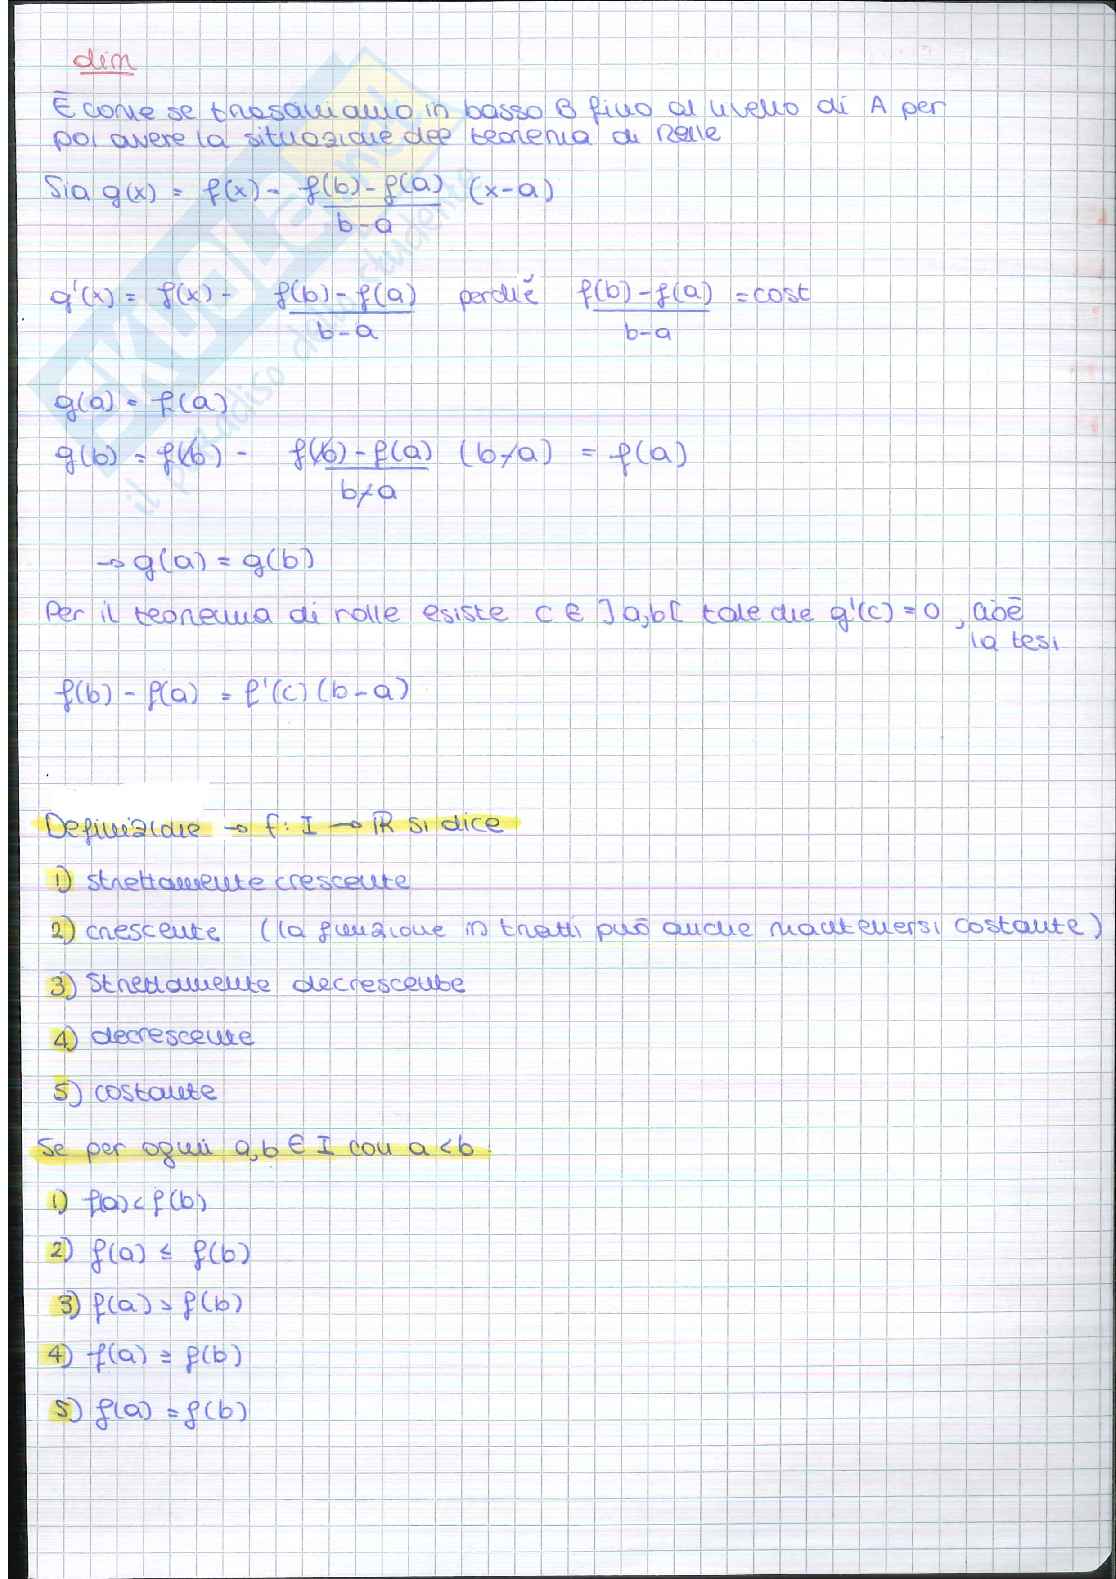 dim
È come se trasciniamo in basso B fino al livello di A per
poi avere la situazione del teorema di Rolle
Sia g(x) = f(x) - f(b)-f(a) / b-a (x-a)
g'(x) = f(x) - f(b)-f(a) / b-a perchè f(b)-f(a) / b-a = cost
g(a) = f(a)
g(b) = f(b) - f(b)-f(a) / b-a (b-a) = f(a)
→ g(a) = g(b)
Per il teorema di rolle esiste c ∈ ]a,b[ tale che g'(c) = 0, cioè
la tesi
f(b) - f(a) = f'(c) (b-a)
Definizione → f: I → ℝ si dice
1) strettamente crescente
2) crescente (la funzione in tratti può anche mantenersi costante)
3) Strettamente decrescente
4) decrescente
5) costante
Se per ogni a,b ∈ I con a < b
1) f(a) < f(b)
2) f(a) ≤ f(b)
3) f(a) > f(b)
4) f(a) ≥ f(b)
5) f(a) = f(b)
SKUOLA.net
il paradiso dello studente